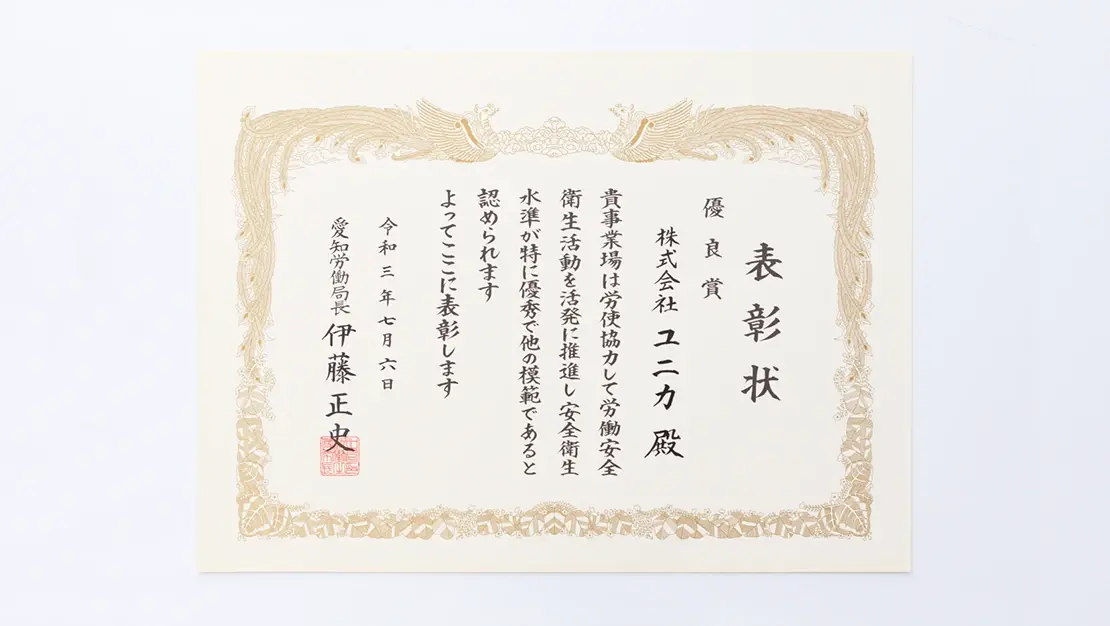 表彰状
優良賞
株式会社 ユニカ 殿
貴事業場は労使協力して労働安全
衛生活動を活発に推進し安全衛生
水準が特に優秀で他の模範であると
認められます
よってここに表彰します
令和三年七月六日
愛知労働局長 伊藤正史